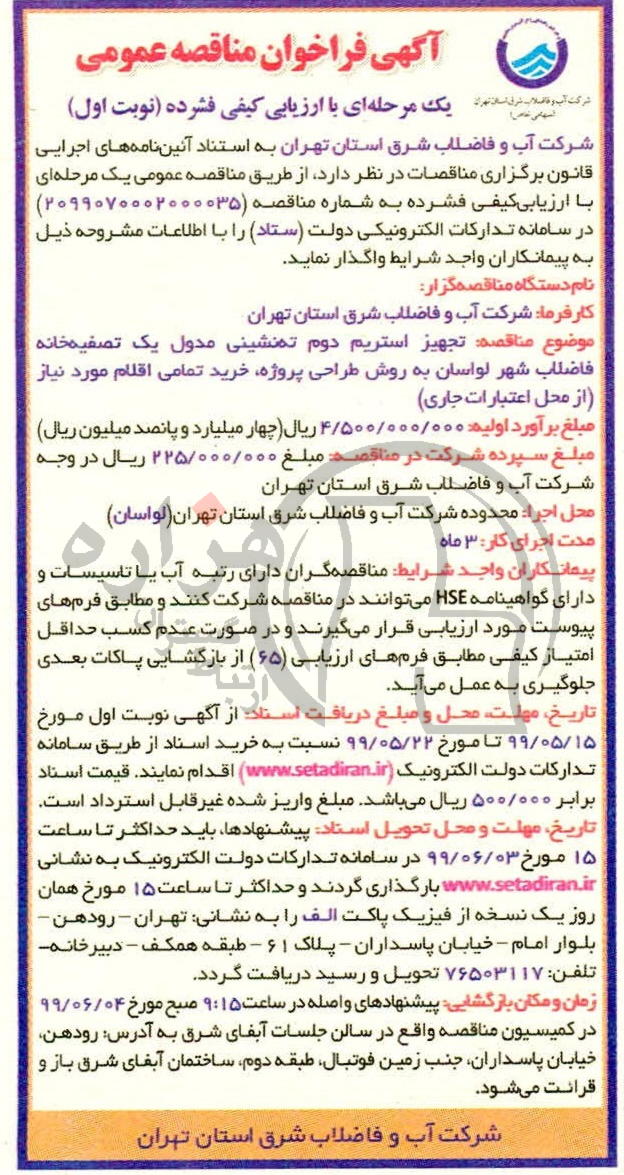 آگهی فراخوان مناقصه عمومی
شرکت آب و فاضلاب شرق استان تهران
(سهامی خاص)
یک مرحله‌ای با ارزیابی کیفی فشرده (نوبت اول)
شرکت آب و فاضلاب شرق استان تهران به استناد آئین‌نامه‌های اجرایی
قانون برگزاری مناقصات در نظر دارد، از طریق مناقصه عمومی یک مرحله‌ای
با ارزیابی‌کیفی فشرده به شماره مناقصه (۲۰۹۹۰۷۰۰۰۲۰۰۰۰۳۵)
در سامانه تدارکات الکترونیکی دولت (ستاد) را با اطلاعات مشروحه ذیل
به پیمانکاران واجد شرایط واگذار نماید.
نام‌دستگاه‌مناقصه‌گزار:
کارفرما: شرکت آب و فاضلاب شرق استان تهران
موضوع مناقصه: تجهیز استریم دوم ته‌نشینی مدول یک تصفیه‌خانه
فاضلاب شهر لواسان به روش طراحی پروژه، خرید تمامی اقلام مورد نیاز
(از محل اعتبارات جاری)
مبلغ برآورد اولیه: ۴/۵۰۰/۰۰۰/۰۰۰ ریال(چهار میلیارد و پانصد میلیون ریال)
مبلغ سپرده شرکت در مناقصه: مبلغ ۲۲۵/۰۰۰/۰۰۰ ریال در وجه
شرکت آب و فاضلاب شرق استان تهران
محل اجرا: محدوده شرکت آب و فاضلاب شرق استان تهران(لواسان)
مدت اجرای کار: ۳ ماه
پیمانکاران واجد شرایط: مناقصه‌گران دارای رتبه آب یا تاسیسات و
دارای گواهینامه HSE می‌توانند در مناقصه شرکت کنند و مطابق فرم‌های
پیوست مورد ارزیابی قرار می‌گیرند و در صورت عدم کسب حداقل
امتیاز کیفی مطابق فرم‌های ارزیابی (۶۵) از بازگشایی پاکات بعدی
جلوگیری به عمل می‌آید.
تاریخ، مهلت، محل و مبلغ دریافت اسناد: از آگهی نوبت اول مورخ
۹۹/۰۵/۱۵ تا مورخ ۹۹/۰۵/۲۲ نسبت به خرید اسناد از طریق سامانه
تدارکات دولت الکترونیک (www.setadiran.ir) اقدام نمایند. قیمت اسناد
برابر ۵۰۰/۰۰۰ ریال می‌باشد. مبلغ واریز شده غیرقابل استرداد است.
تاریخ، مهلت و محل تحویل اسناد: پیشنهادها، باید حداکثر تا ساعت
۱۵ مورخ ۹۹/۰۶/۰۳ در سامانه تدارکات دولت الکترونیک به نشانی
www.setadiran.ir بارگذاری گردند و حداکثر تا ساعت ۱۵ مورخ همان
روز یک نسخه از فیزیک پاکت الف را به نشانی: تهران – رودهن –
بلوار امام – خیابان پاسداران – پلاک ۶۱ – طبقه همکف – دبیرخانه–
تلفن: ۷۶۵۰۳۱۱۷ تحویل و رسید دریافت گردد.
زمان و مکان بازگشایی: پیشنهادهای واصله در ساعت ۹:۱۵ صبح مورخ ۹۹/۰۶/۰۴
در کمیسیون مناقصه واقع در سالن جلسات آبفای شرق به آدرس: رودهن،
خیابان پاسداران، جنب زمین فوتبال، طبقه دوم، ساختمان آبفای شرق باز و
قرائت می‌شود.
شرکت آب و فاضلاب شرق استان تهران